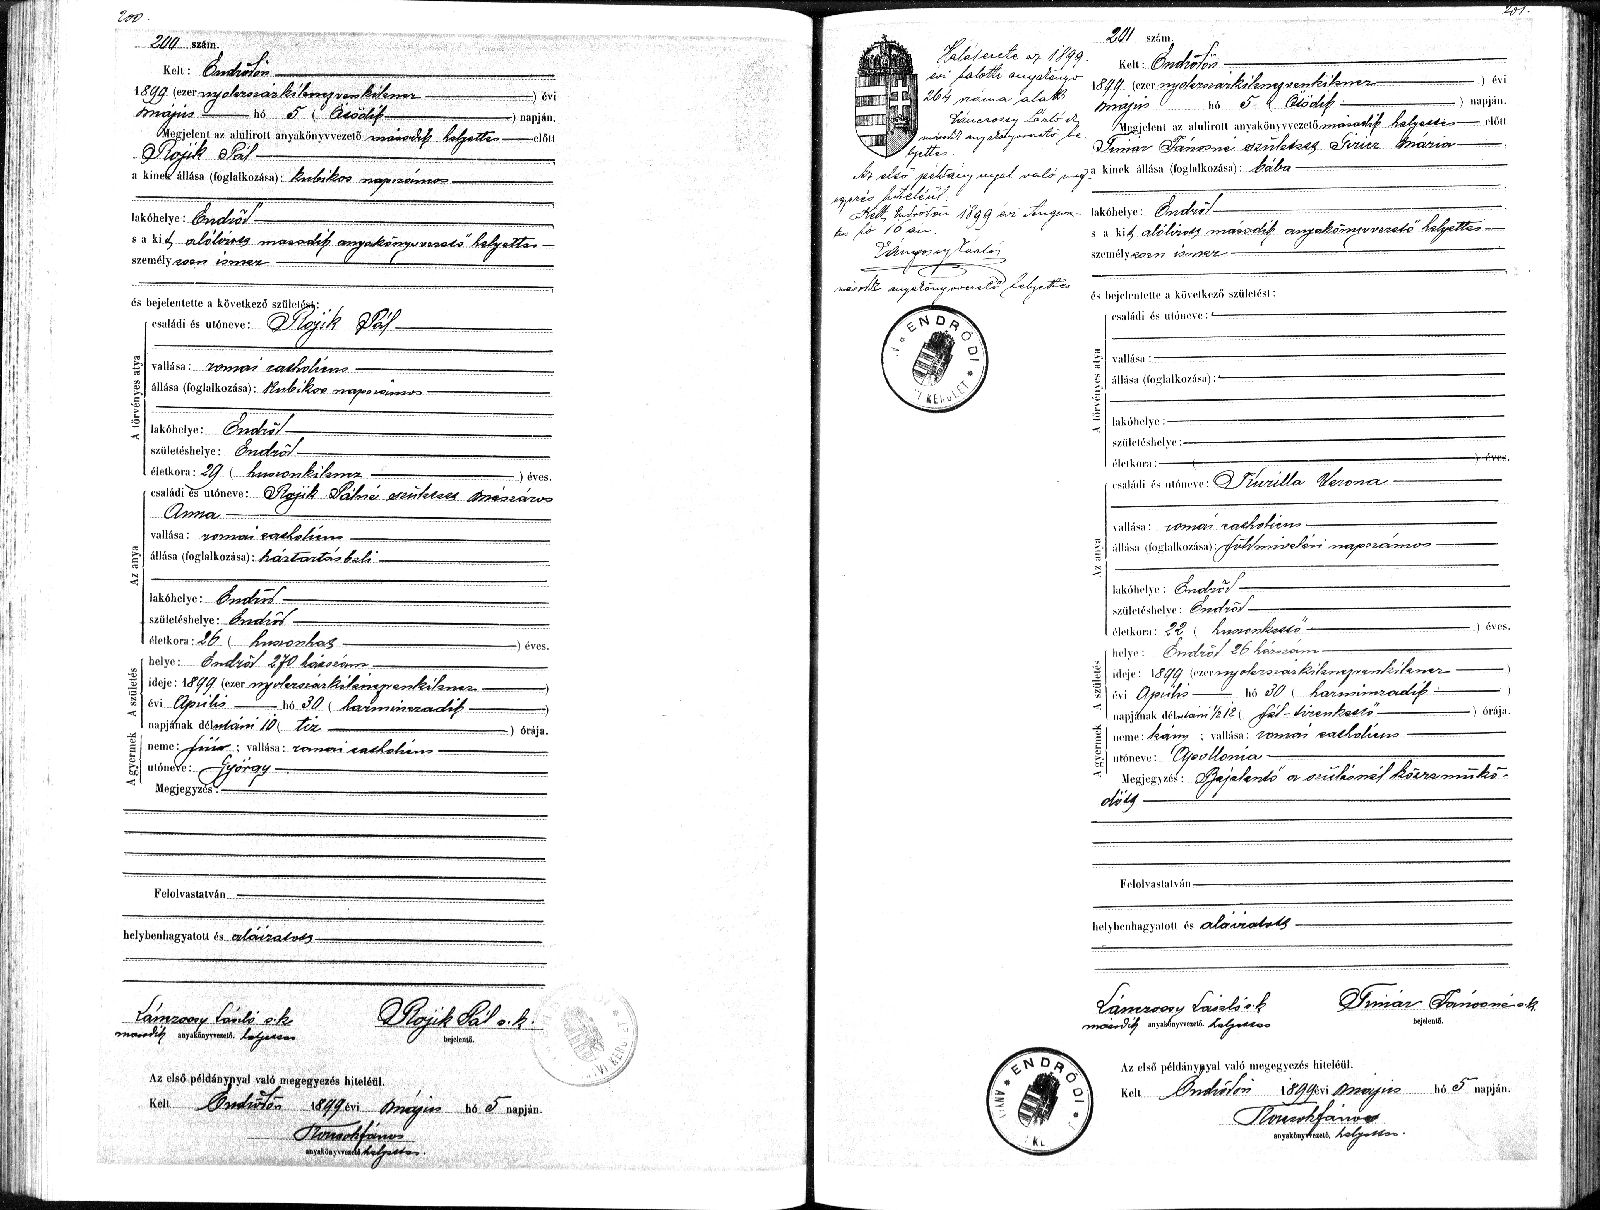 200.
200 szám.
Kelt: Endrődön
1899 (ezer nyolcszázkilencvenkilenc) évi
május hó 5 (ötödik) napján.
Megjelent az alulirott anyakönyvvezető második helyettes előtt
Rojik Pál
a kinek állása (foglalkozása): kubikos napszámos
lakóhelye: Endrőd
s a kit alólirott második anyakönyvvezető helyettes
személyesen ismer
és bejelentette a következő születést:
A törvényes atya
családi és utóneve: Rojik Pál
vallása: romai catholicus
állása (foglalkozása): kubikos napszámos
lakóhelye: Endrőd
születéshelye: Endrőd
életkora: 29 (huszonkilenc) éves.
Az anya
családi és utóneve: Rojik Pálné született Mészáros
Anna
vallása: romai catholicus
állása (foglalkozása): háztartásbeli
lakóhelye: Endrőd
születéshelye: Endrőd
életkora: 26 (huszonhat) éves.
A születés
helye: Endrőd 270 házszám
ideje: 1899 (ezer nyolcszázkilencvenkilenc)
évi Április hó 30 (harmincadik)
napjának délutáni 10 (tiz) órája.
A gyermek
neme: fiú; vallása: romai catholicus
utóneve: György
Megjegyzés:
Felolvastatván
helybenhagyatott és aláiratott
Lánczossy László s.k. Rojik Pál s.k.
második anyakönyvvezető. helyettes bejelentő.
Az első példánynyal való megegyezés hiteléül.
Kelt Endrődön 1899 évi május hó 5 napján.
anyakönyvvezető helyettes.
201.
Halálesete az 1899
évi halotti anyakönyv
264 száma alatt.
Lánczossy László s.k.
második anyakönyvvezető he-
lyettes.
Az első példánynyal való meg-
egyezés hiteléül.
Kelt Endrődön 1899 évi
hó 10 én.
Lánczossy László
második anyakönyvvezető helyettes
ENDRŐDI
KERÜLET
201 szám.
Kelt: Endrődön
1899 (ezer nyolcszázkilencvenkilenc) évi
május hó 5 (ötödik) napján.
Megjelent az alulirott anyakönyvvezető második helyettes előtt
Timár Jánosné született Mária
a kinek állása (foglalkozása): bába
lakóhelye: Endrőd
s a kit alólirott második anyakönyvvezető helyettes
személyesen ismer
és bejelentette a következő születést:
A törvényes atya
családi és utóneve:
vallása:
állása (foglalkozása):
lakóhelye:
születéshelye:
életkora: ( ) éves.
Az anya
családi és utóneve: Kurilla Verona
vallása: romai catholicus
állása (foglalkozása): földmivelési napszámos
lakóhelye: Endrőd
születéshelye: Endrőd
életkora: 22 (huszonkettő) éves.
A születés
helye: Endrőd 26 házszám
ideje: 1899 (ezer nyolcszázkilencvenkilenc)
évi Április hó 30 (harmincadik)
napjának délutáni 1/2 12 (fél-tizenkettő) órája.
A gyermek
neme: leány; vallása: romai catholicus
utóneve: Apollonia
Megjegyzés: Bejelentő a szülésnél közremükö-
dött
Felolvastatván
helybenhagyatott és aláiratott
Lánczossy László s.k. Timár Jánosné s.k.
második anyakönyvvezető. helyettes bejelentő.
Az első példánynyal való megegyezés hiteléül.
Kelt Endrődön 1899 évi május hó 5 napján.
anyakönyvvezető, helyettes.
ENDRŐDI